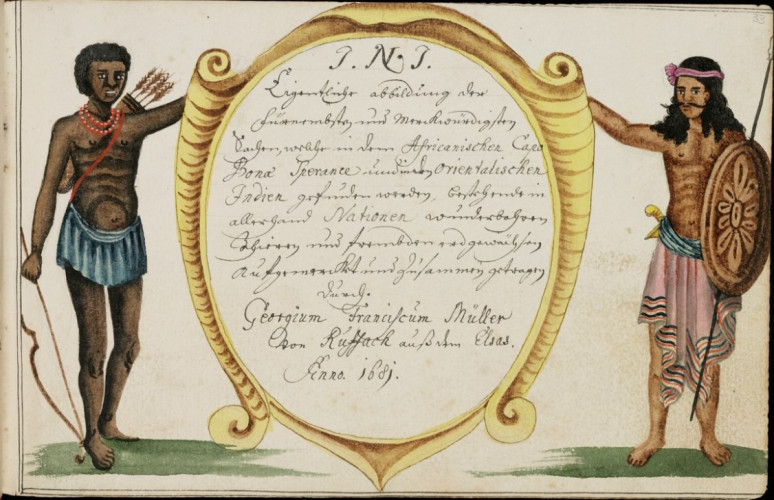 J. N. J.
Eigentliche abbildung der
fürnembsten und Merckwürdigsten
Sachen, welche in dem Africanischen Capo
Bona Sperance und in den orientalischen
Indien gefunden werden, bestehende in
allerhand Nationen wunderbahren
Thieren und frembden erdgewächsen
Auffgemerckt und zusammen getragen
durch.
Georgium Franciscum Müller
von Ruffach auß dem Elsas.
Anno. 1681.